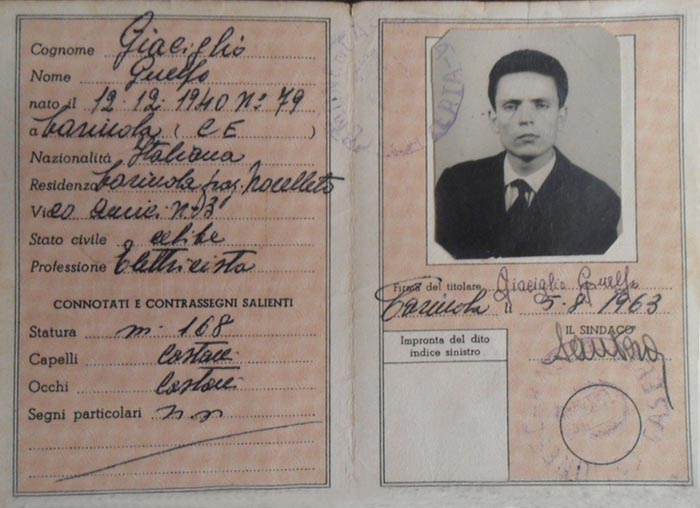 Cognome Giaciglio
Nome Guelfo
nato il 12·12·1940 Nº 79
a Carinola ( CE )
Nazionalità Italiana
Residenza Carinola fraz. Nocelleto
Via
Stato civile celibe
Professione Elettricista
CONNOTATI E CONTRASSEGNI SALIENTI
Statura m· 168
Capelli castani
Occhi castani
Segni particolari n n
Firma del titolare Giaciglio Guelfo
Carinola li 5-8-1963
IL SINDACO
Impronta del dito
indice sinistro